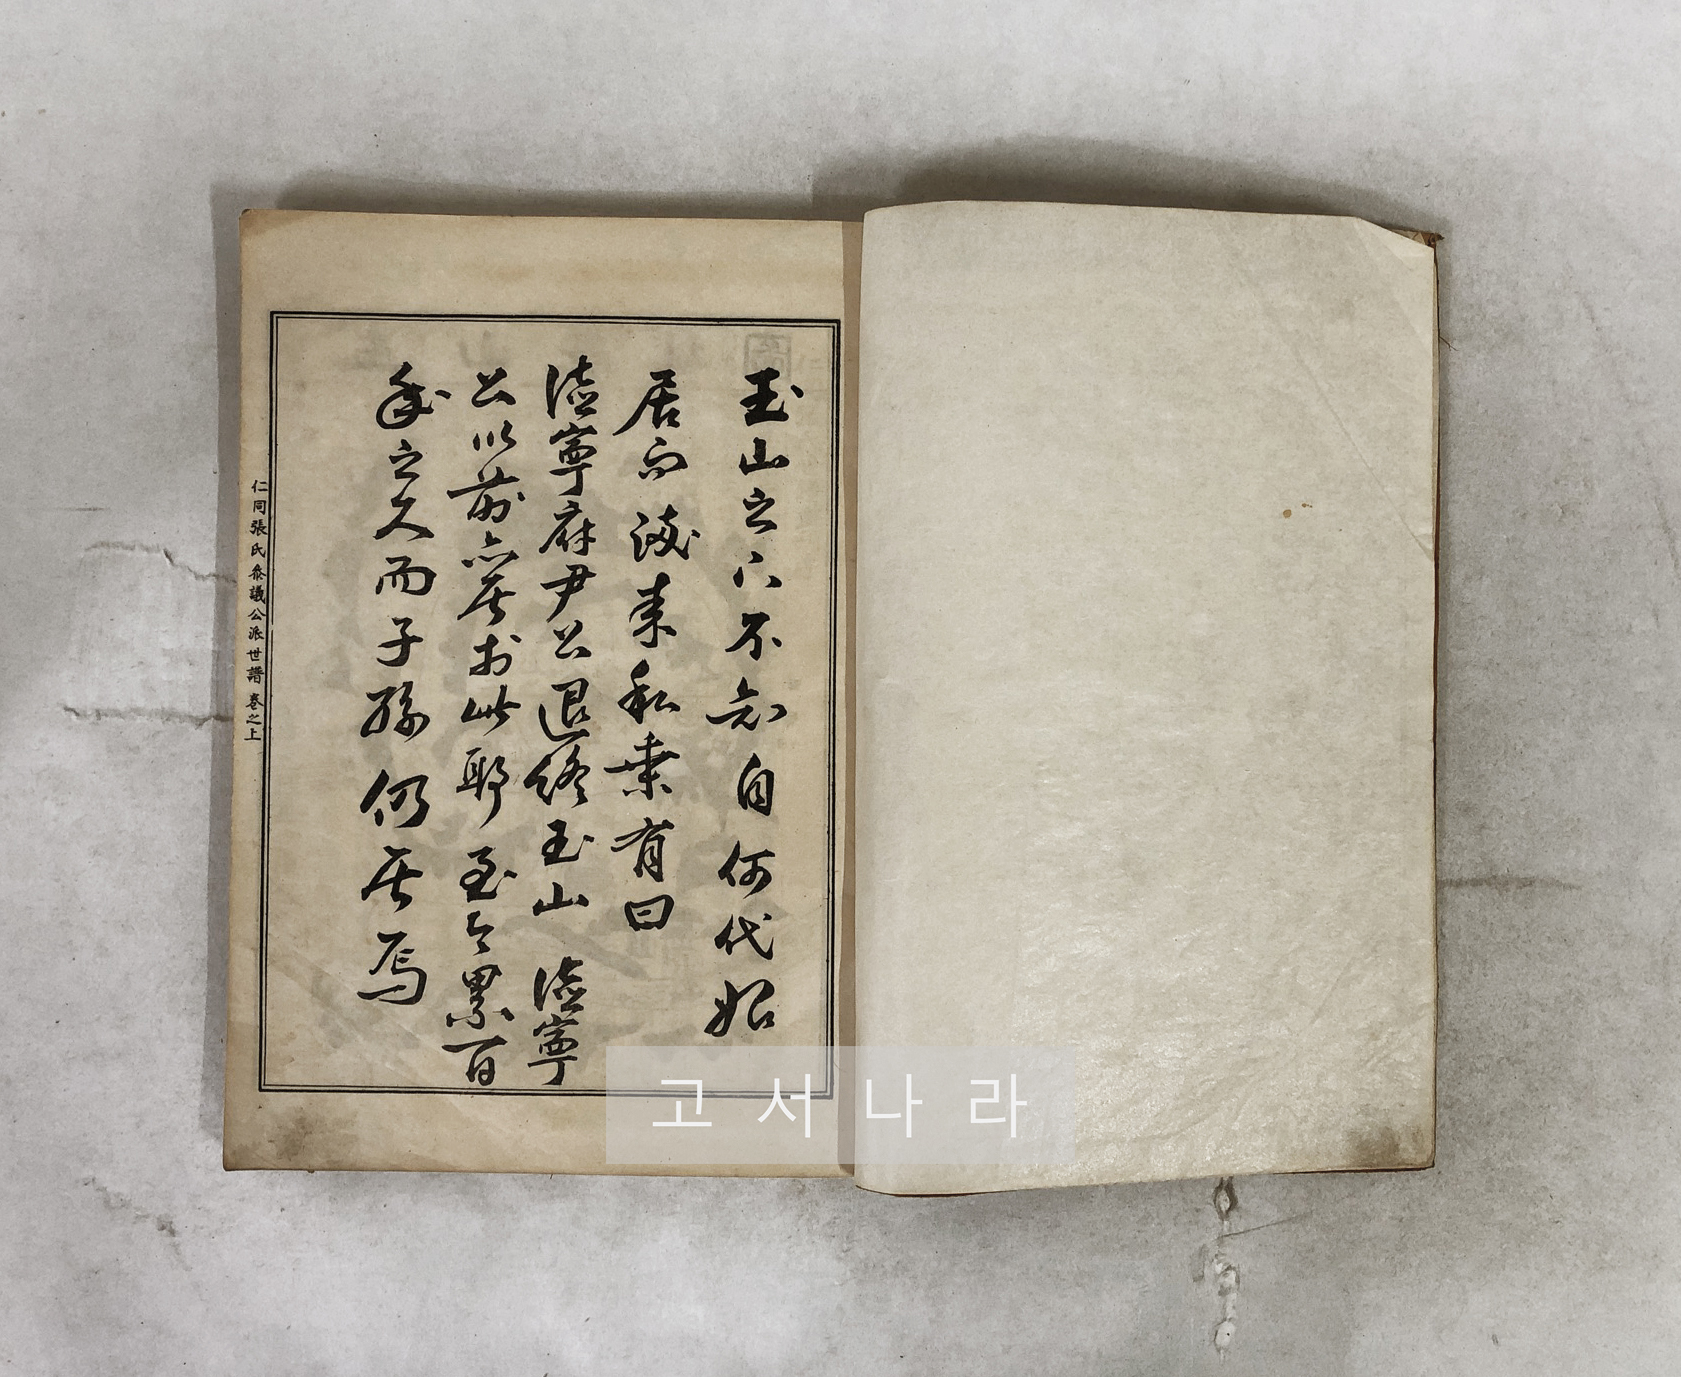 玉山之下不知自何代始
居而謏來私乗有曰
德寧府尹公退終玉山 德寧
公以前亦居於此耶至今累百
年之久而子孫仍居焉
仁同張氏叅議公派世譜 卷之上
고서나라